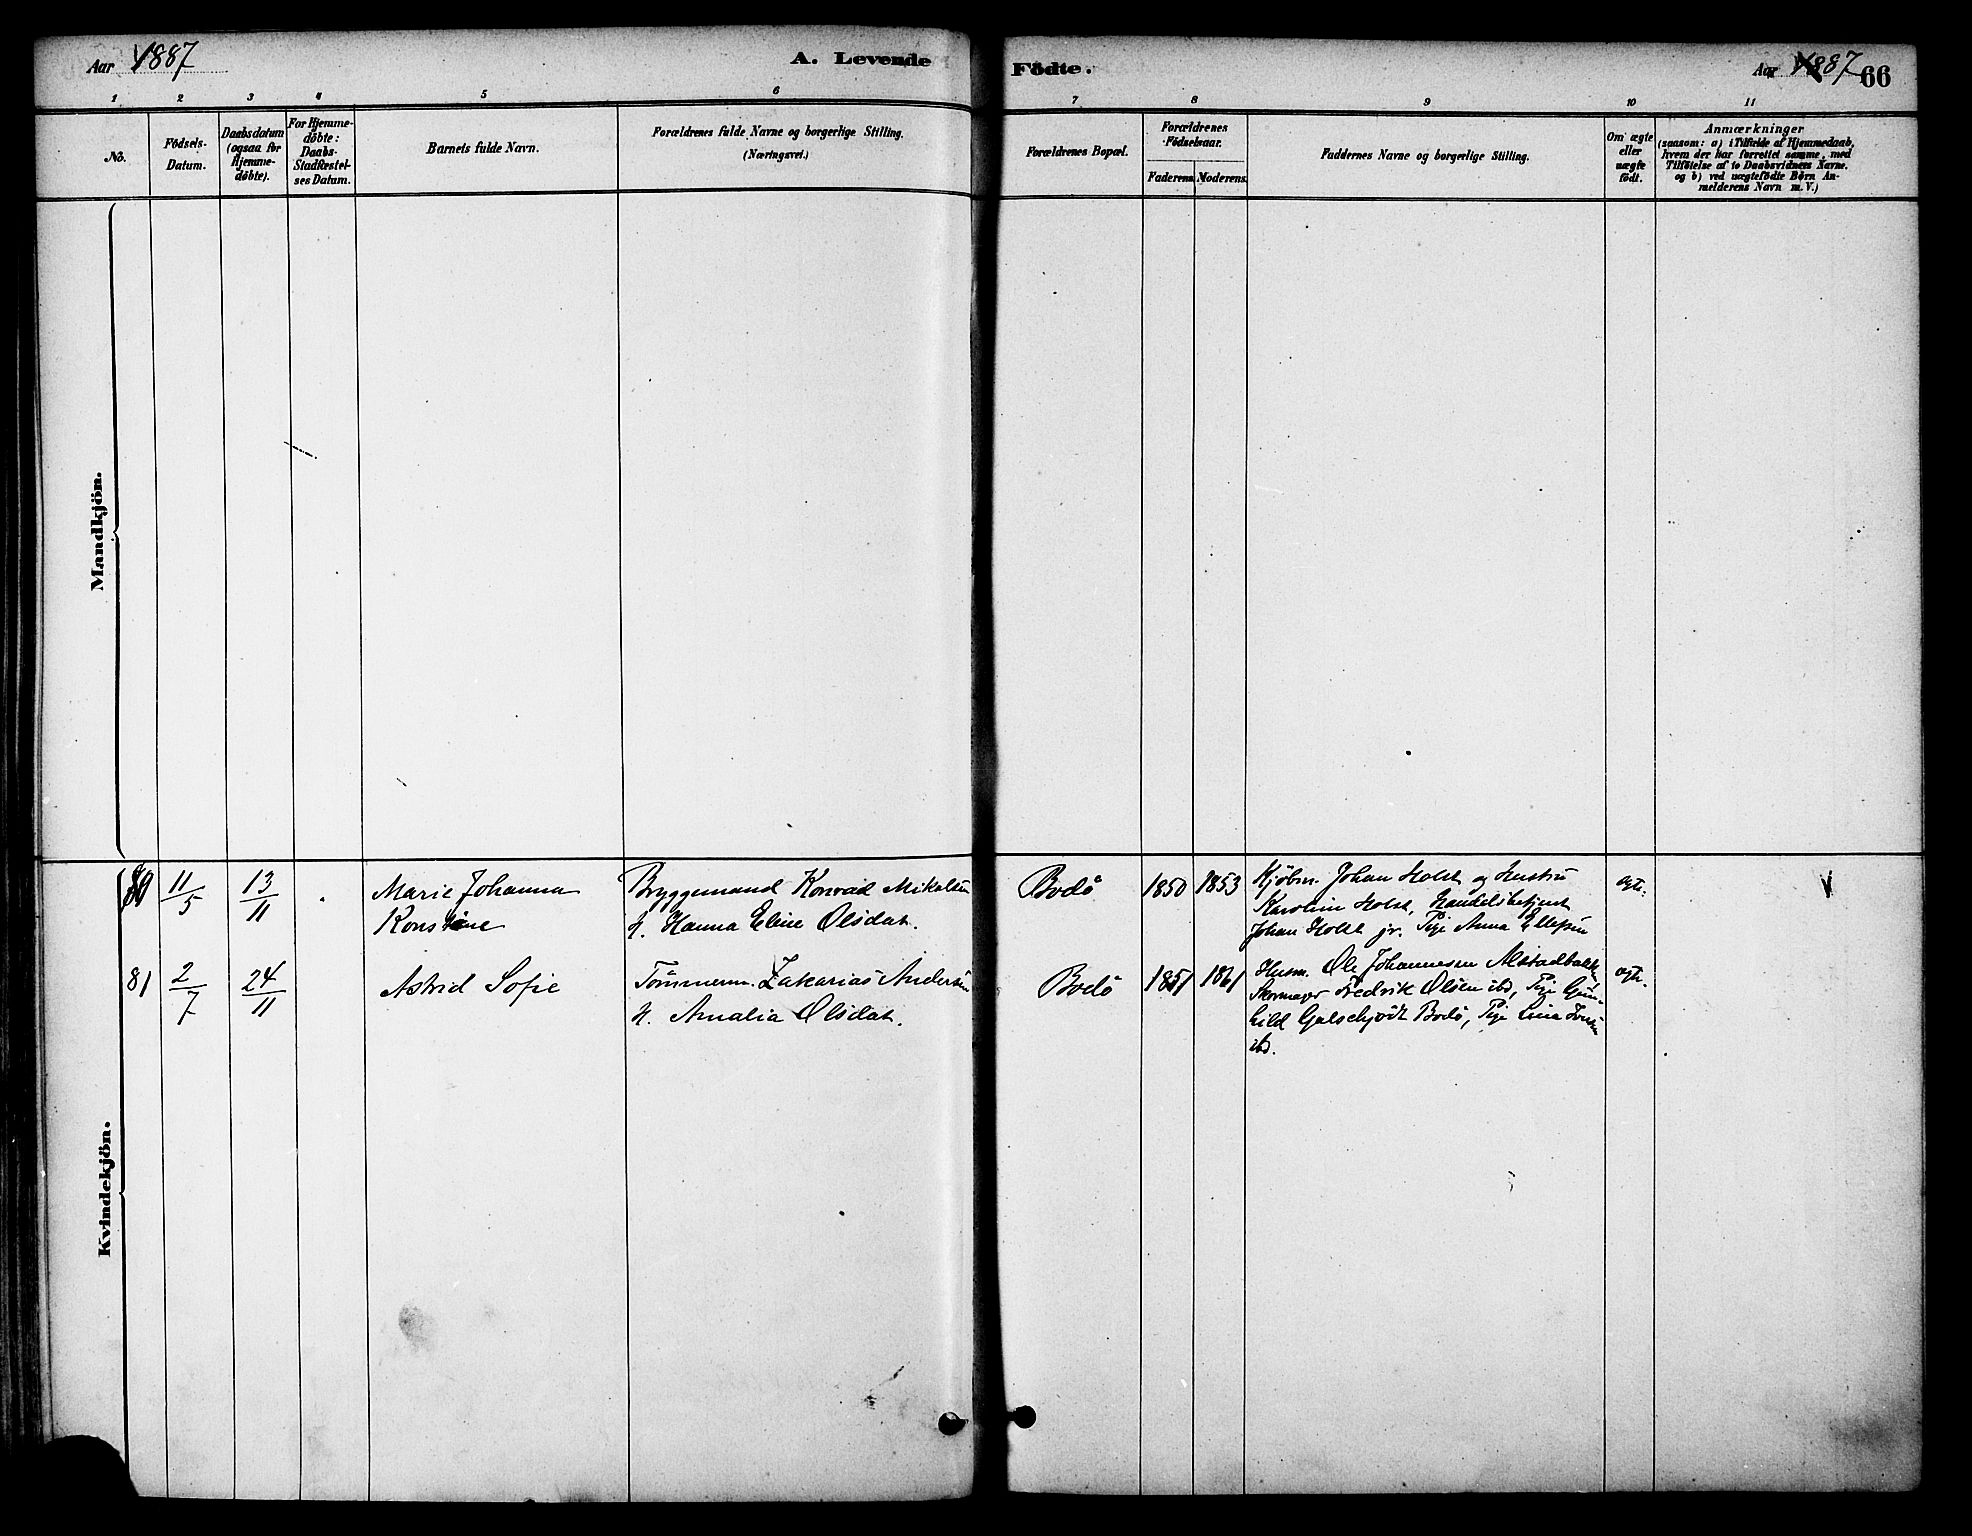 Aar 1887
A. Levende
Fødte.
Aar 1887 66
1 2 3 4 5 6
7 8 9 10 11
No.
Fødsels-
Datum.
Daabsdatum
(ogsaa for
Hjemme-
døbte).
For Hjemme-
døbte:
Daabs-
Stadfæstel-
ses Datum.
Barnets fulde Navn.
Forældrenes fulde Navne og borgerlige Stilling.
(Næringsvei.)
Forældrenes Bopæl.
Forældrenes
Fødselsaar.
Faderens. Moderens.
Faddernes Navne og borgerlige Stilling.
Om ægte
eller
uægte
født.
Anmærkninger
(saasom: a) i Tilfælde af Hjemmedaab,
hvem der har forrettet samme, med
Tilføielse af to Daabsvidners Navne.
og b) ved uægtefødte Børn An-
melderens Navn m. V.)
Mandkjön.
Kvindekjön.
80 11/5 13/11 Marie Johanna
Konstine
Bryggemand Konrad Mikalsen
H. Hanna Eline Olsdat.
Bodø 1850 1853
Kjøbm. Johan Holst og Hustru
Karolin Holst, Handelsbetjent
Johan Holst jr. Pige Anna Ellefsen
ægte. V
81 2/7 24/11 Astrid Sofie
Tømmerm. Zakarias Andersen
H. Amalia Olsdat.
Bodø 1851 1861
Husm. Ole Johannesen Alstadbakk
Skomager Fredrik Olsen ibd, Pige Gun-
hild Galschjødt Bodø, Pige Lina
ibd.
ægte.